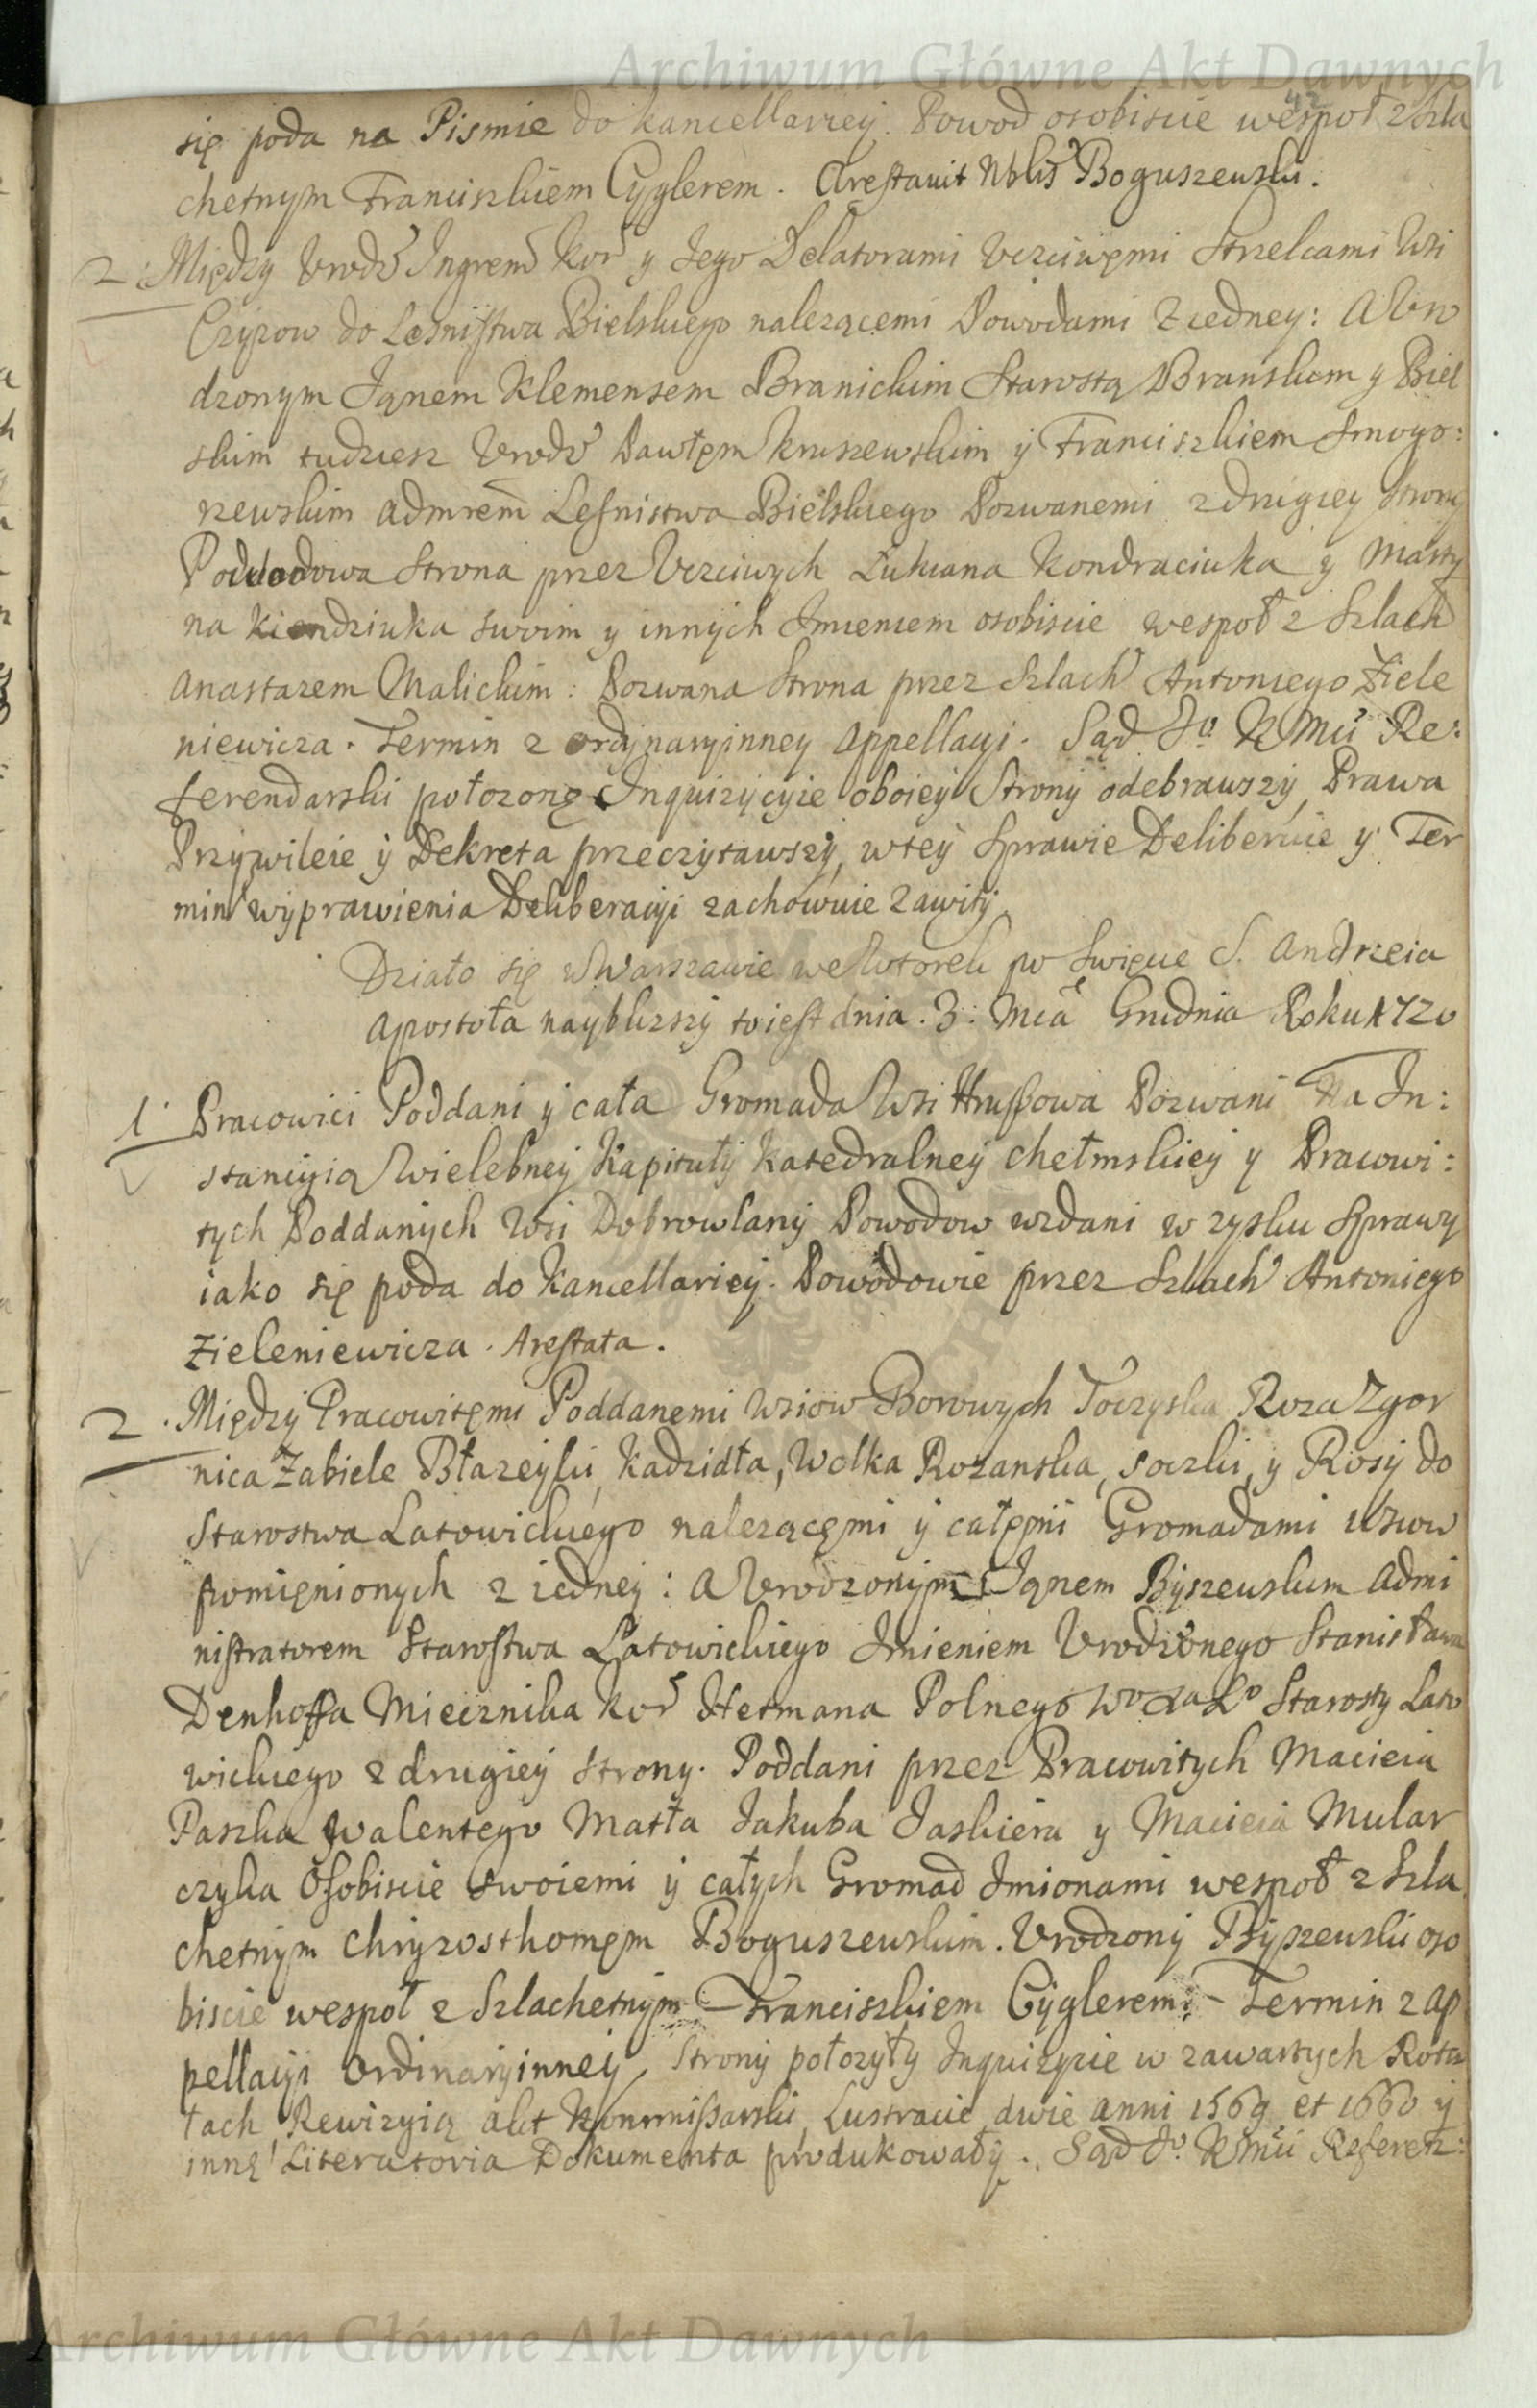 Archiwum Główne Akt Dawnych
42
się poda na Pismie do kancellaryey. Powod osobiscie wespoł z Szla
chetnym Franciszkiem Cyglerem. Arestauit Nblis Boguszewski.
2. Między Vrodz Ingrem Kor y Jego Delatorami Vczciwęmi Strzelcami Wsi
Czyzow do Lesnistwa Bielskiego nalezącemi Powodami z iedney: A Vro
dzonym Janem Klemensem Branickim Starostą Branskim y Biel
skim tudziesz Vrodz Pawłęm Kruszewskim y Franciszkiem Smogo:
rzewskim Admrem Lesnistwa Bielskiego Pozwanemi z drugiey strony
Powodowa Strona przez Vczciwych Łukiana Kondraciuka y Marty
na Kiendziuka swoim y innych Imieniem osobiscie wespoł z Szlach
Anastazem Malickim: Pozwana Strona przez Szlach Antoniego Ziele
niewicza. Termin z ordynaryinney Appellacyi. Sąd Jo KMci Re:
ferendarski połozonę Inquizycyie oboiey Strony odebrawszy, Prawa
Przywileie y Dekreta przeczytawszy, w tey Sprawie Deliberuie y Ter
min wyprawienia Deliberacyi zachowuie zawity
Działo się w Warszawie we Wtorek po Swięcie S. Andrzeia
Apostoła naybliższy to iest dnia. 3. Mca Grudnia Roku 1720
1. Pracowici Poddani y cała Gromada Wsi Hrußowa Pozwani Na In:
stancyią Wielebney Kapituły Katedralney Chełmskiey y Pracowi:
tych Poddanych Wsi Dobrowlany Powodow wzdani w zysku Sprawy
iako się poda do Kancellariey. Powodowie przez Szlach Antoniego
Zieleniewicza. Arestata.
2. Między Pracowitęmi Poddanemi Wsiow Borowych Toczyska Roza Zgor
nica Zabiele Błazeyki, Kadzidła, Wolka Rozanska, soczki, y Rosy do
Starostwa Latowickiego nalezącęmi y całęmi Gromadami Wsiow
pomięnionych z iedney: A Vrodzonym Janem Byszewskim Admi
nistratorem Starostwa Latowickiego Imieniem Vrodzonego Stanisława
Denhoffa Miecznika Kor Hetmana Polnego Starosty Lato
wickiego z drugiey strony. Poddani przez Pracowitych Macieia
Paszka Walentego Matła Jakuba Jaskiera y Macieia Mular
czyka Osobiscie swoiemi y całych Gromad Imionami wespoł z Szla
chetnym Chryzosthomęm Boguszewskim. Vrodzony Byszewski oso
biscie wespoł z Szlachetnym Franciszkiem Cyglerem. Termin z Ap
pellacyi Ordinaryinney, Strony połozyły Inquizycie w zawartych Rotu
łach Rewizyią akt Kommißarski, Lustracie dwie anni 1569 et 1660 y
innę Literatoria Dokumenta produkowały. Sąd Jo KMci Referen:
Archiwum Główne Akt Dawnych